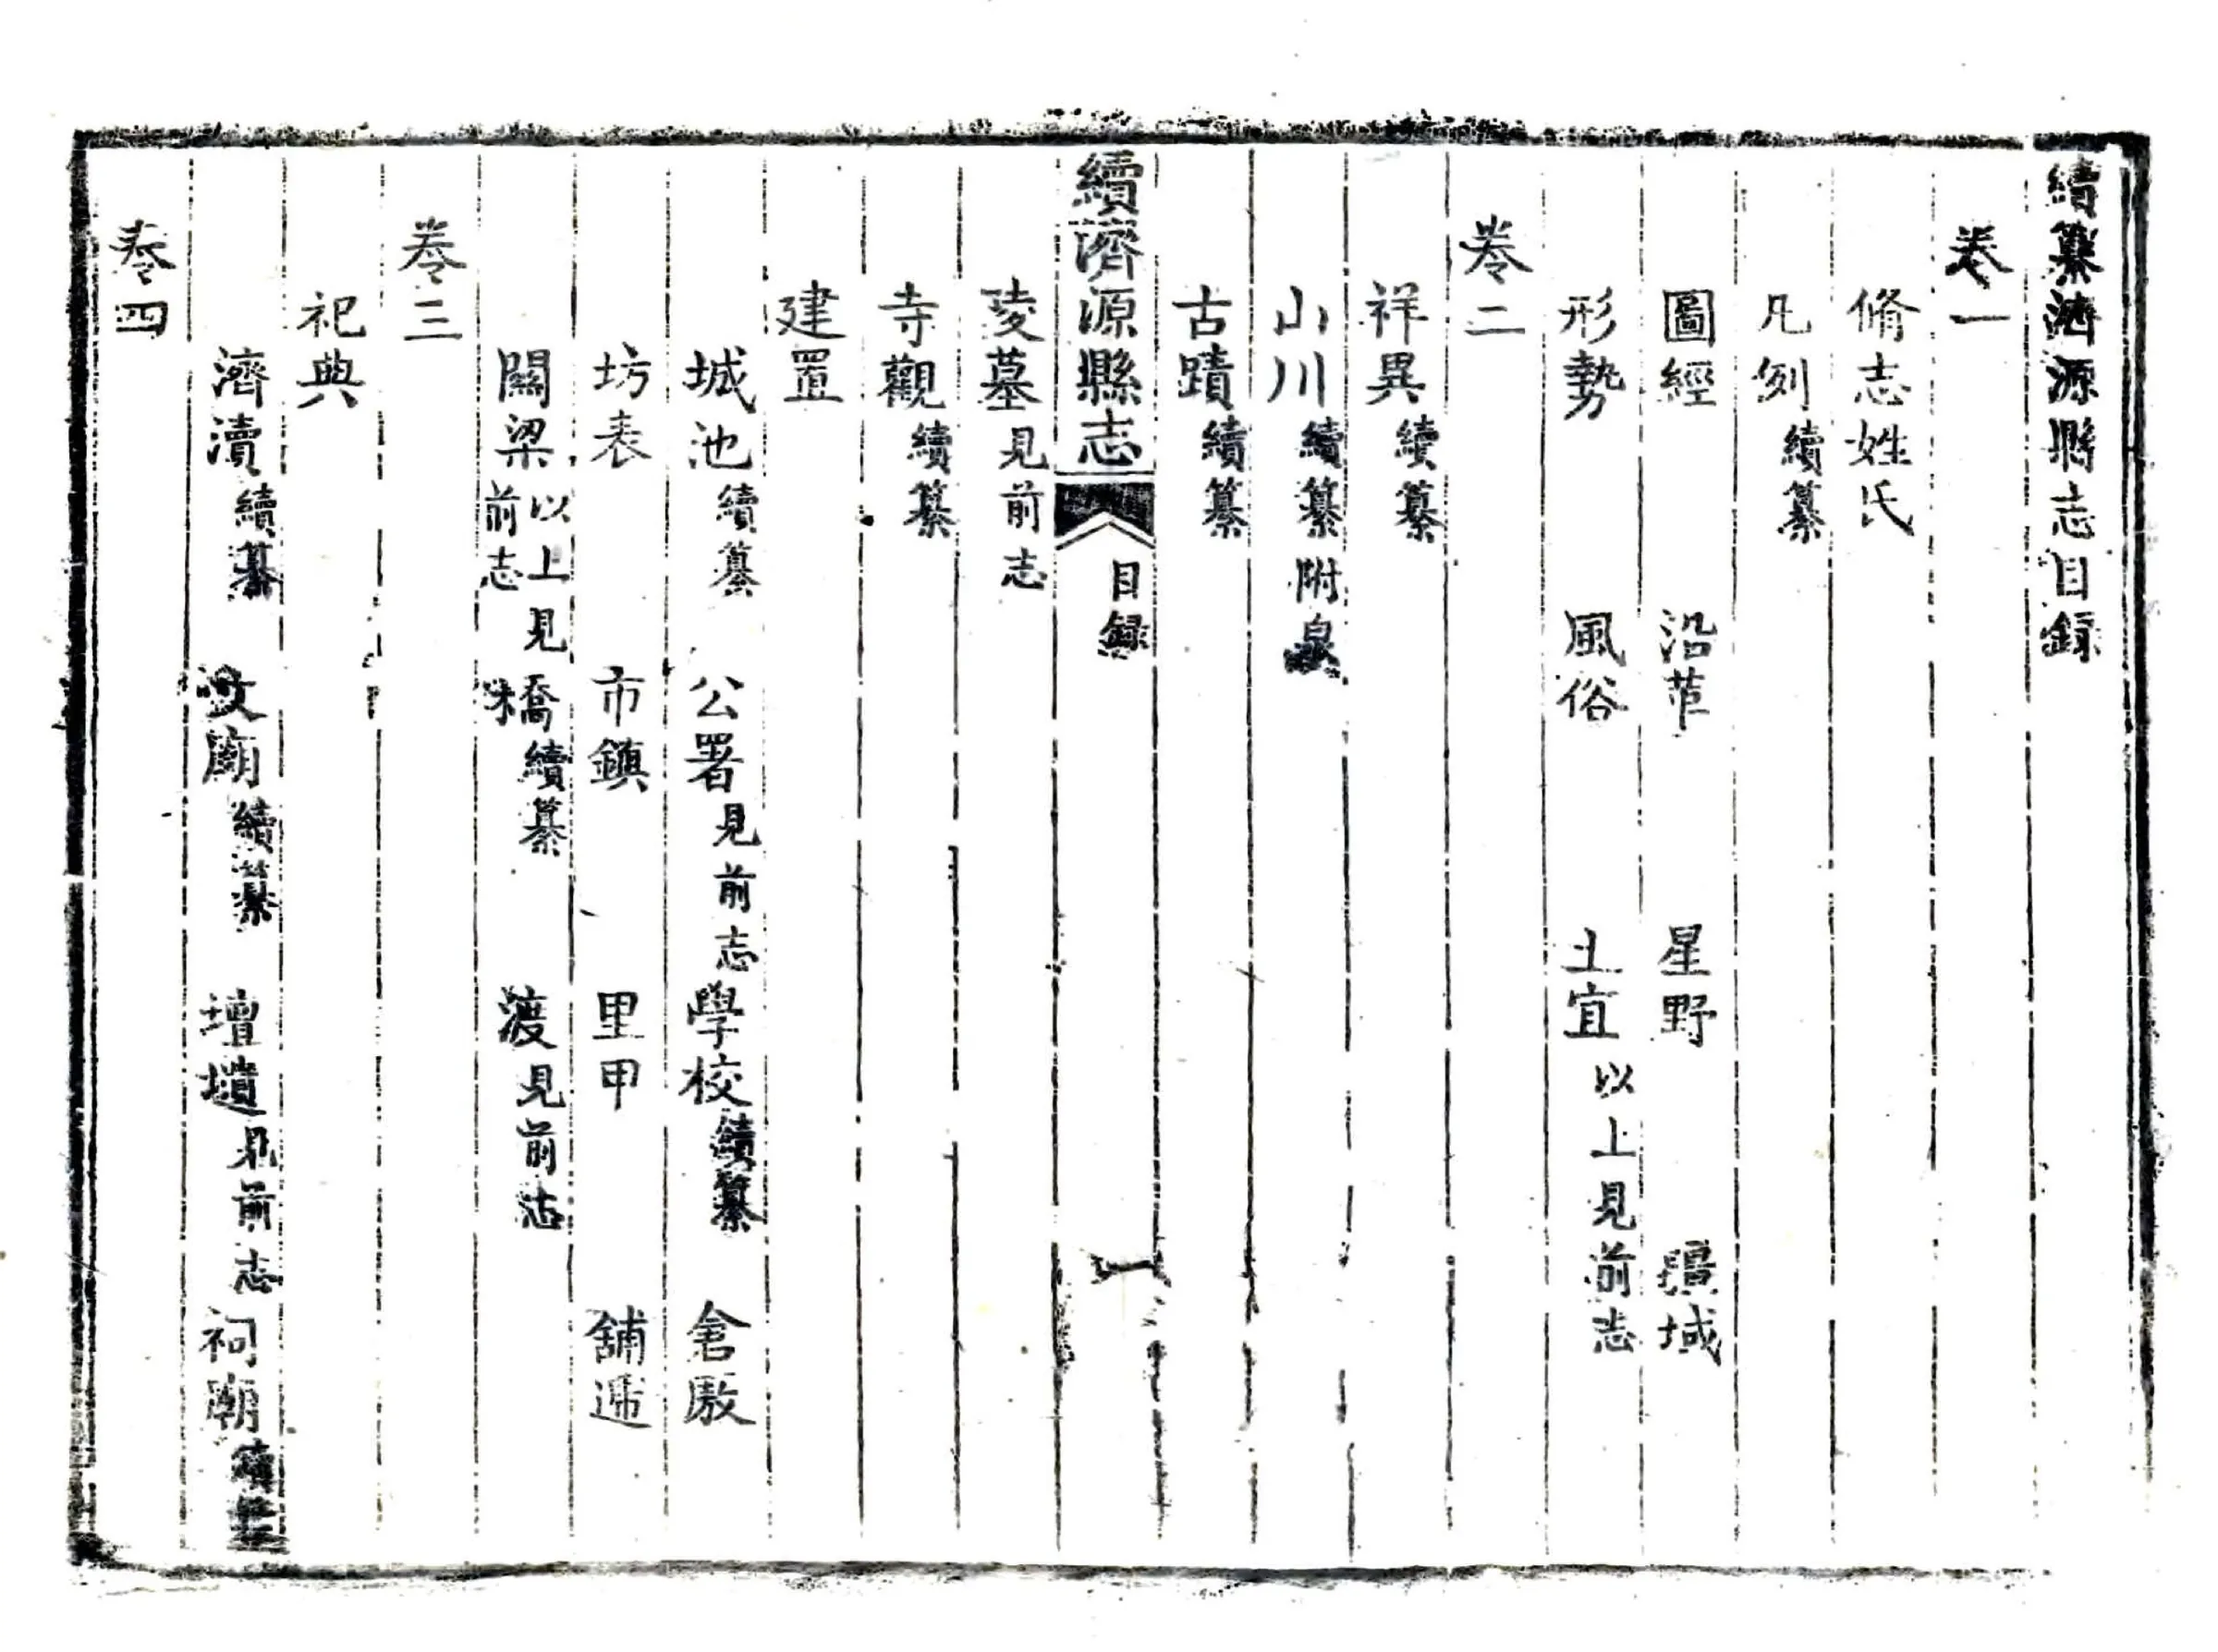 續纂濟源縣志目録
卷一
脩志姓氏
凡例續纂
圖經 沿革 星野 疆域
形勢 風俗 土宜以上見前志
卷二
祥異續纂
山川續纂附泉
古蹟續纂
續濟源縣志 目録 一
陵墓見前志
寺觀續纂
建置
城池續纂 公署見前志 學校續纂 倉廒
坊表 市鎮 里甲 舖遞
關梁以上見前志 橋續纂 渡見前志
卷三
祀典
濟瀆續纂 文廟續纂 壇壝見前志 祠廟續纂
卷四